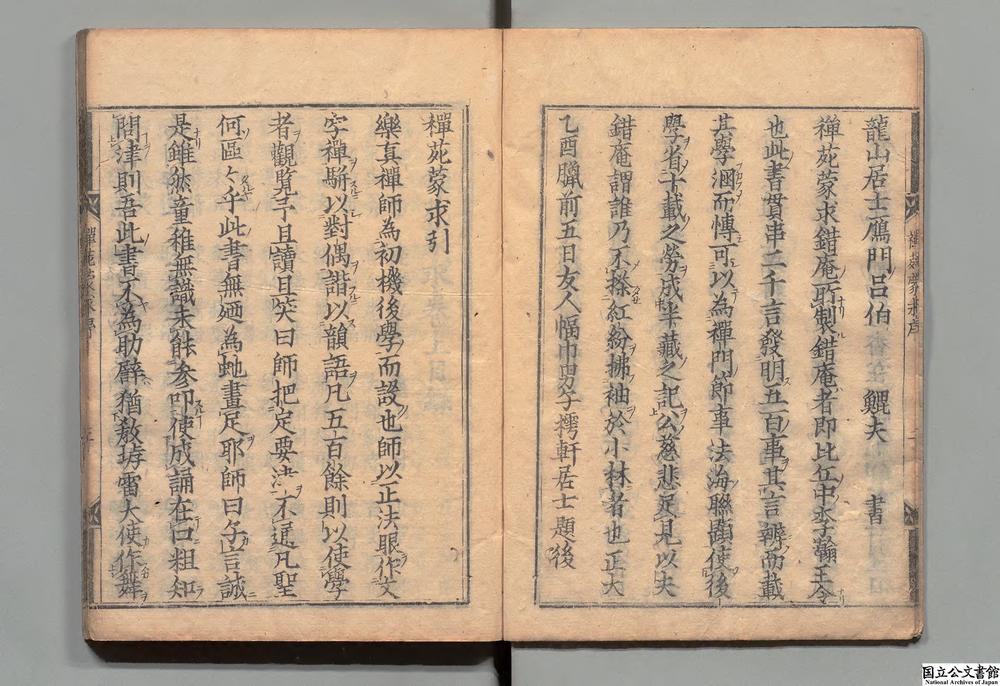 龍山居士鴈門呂伯鯤夫書
禪苑蒙求錯庵所製錯庵者即比丘中李瀚王令
也此書貫串二千言發明五百事其言辨而載
其學涸而慱可以為禪門節事法海聯顯使後
學省十載之勞成半藏之記公慈悲足見以夫
錯庵謂誰乃不搽紅紛拂袖於小林者也正大
乙酉臘前五日友人幅巾男子樗軒居士題後
禪苑蒙求引
樂真禪師為初機後學而設也師以正法眼作文
字禪駢以對偶諧以韻語凡五百餘則以使學
者觀覽予且讀且笑曰師把定要津不通凡聖
何區〻乎此書無廼為虵畫足耶師曰子言誠
是雖然童稚無識未能参叩使成誦在口粗知
問津則吾此書不為助
猶敎坊雷大使作舞
禪苑蒙求序
国立公文書館
National Archives of Japan